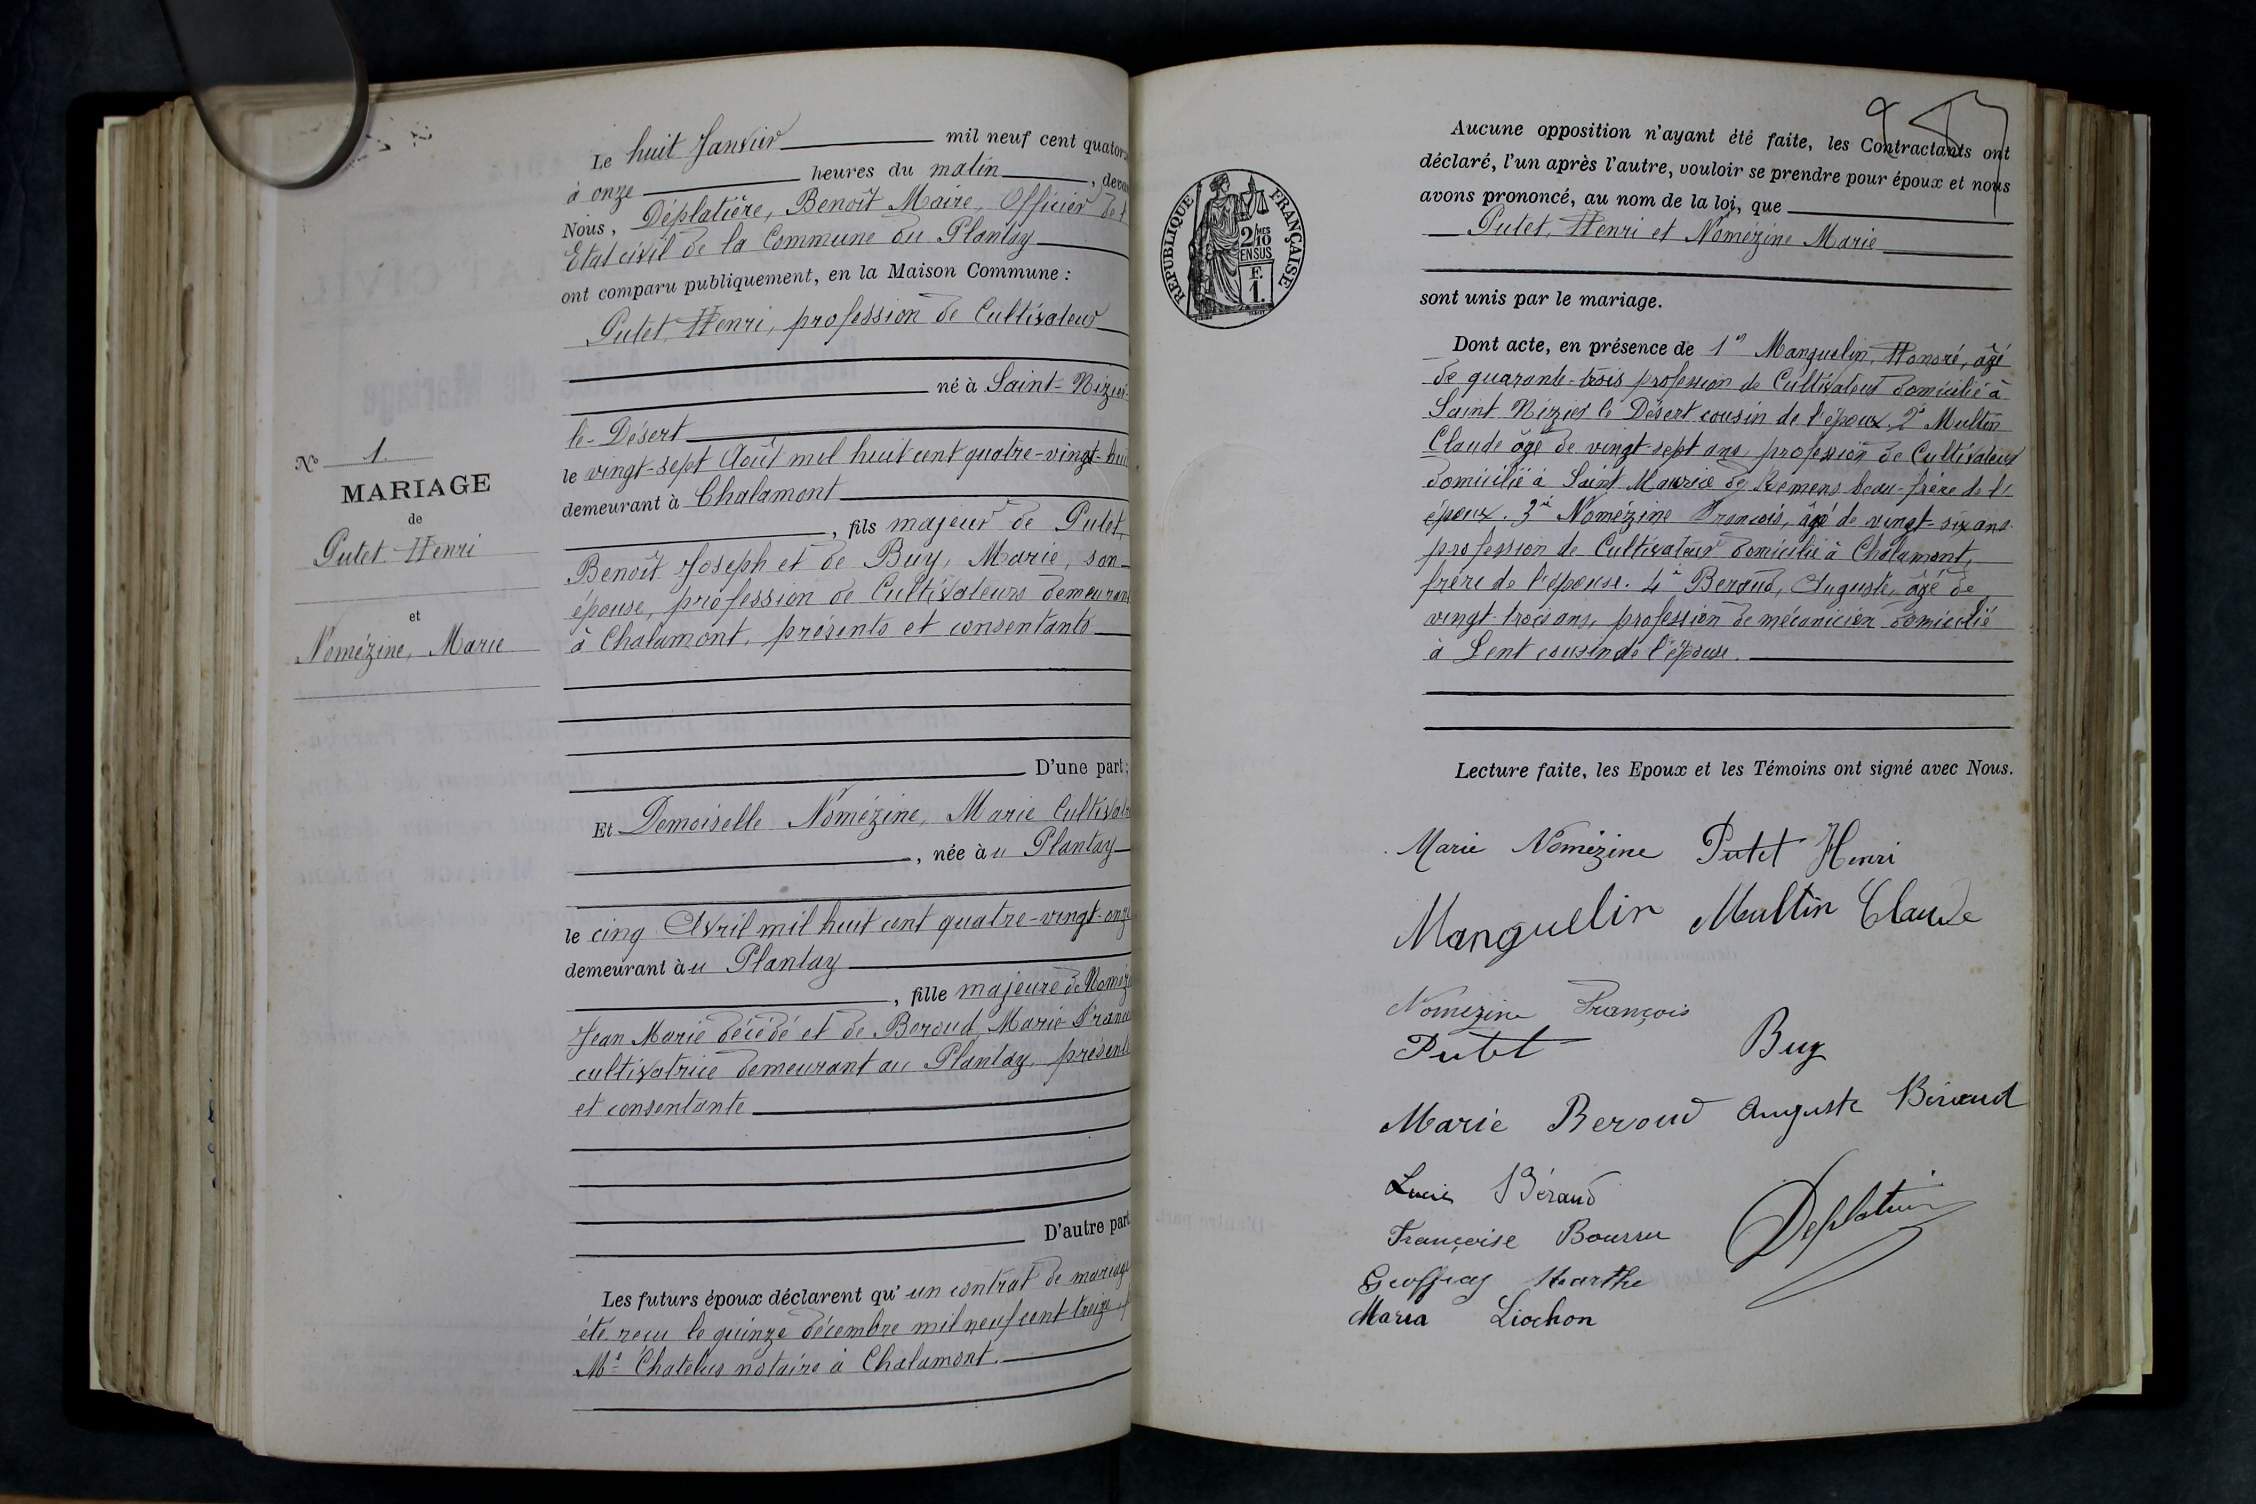 Le huit Janvier mil neuf cent quator
à onze heures du matin, deva
Nous, Déplatière, Benoît Maire, Officier de l
Etat civil de la Commune du Plantay
ont comparu publiquement, en la Maison Commune :
Putet Henri, profession de Cultivateur
né à Saint-Nizier-
le-Désert
le vingt-sept Août mil huit cent quatre-vingt-hui
demeurant à Chalamont
, fils majeur de Putet,
Benoît Joseph et de Buy, Marie, son
épouse, profession de Cultivateurs demeurant
à Chalamont, présents et consentants
D'une part ;
N° 1.
MARIAGE
de
Putet Henri
et
Nomézine, Marie
Et Demoiselle Nomézine, Marie Cultivatr
, née àu Plantay
le cinq Avril mil huit cent quatre-vingt-onze
demeurant àu Plantay
, fille majeure de Noméz
Jean Marie décédé et de Beroud, Marie Franc
cultivatrice demeurant au Plantay, présente
et consentante
D'autre part
Les futurs époux déclarent qu' un contrat de mariage
été reçu le quinze décembre mil neuf cent treize
Mᵉ Chatelus notaire à Chalamont.
REPUBLIQUE FRANÇAISE
2/10
EN SUS
F.
1.
Aucune opposition n'ayant été faite, les Contractants ont
déclaré, l'un après l'autre, vouloir se prendre pour époux et nous
avons prononcé, au nom de la loi, que
Putet, Henri et Nomézine Marie
sont unis par le mariage.
Dont acte, en présence de 1° Manguelin, Honoré, âgé
de quarante-trois profession de Cultivateur domicilié à
Saint Nizier le Désert cousin de l'époux. 2° Multin
Claude âgé de vingt-sept ans, profession de Cultivateur
domicilié à Saint Maurice de Remens beau-frère de l'
époux. 3° Nomézine François, âgé de vingt-six ans
profession de Cultivateur domicilié à Chalamont,
frère de l'épouse. 4° Beraud, Auguste, âgé de
vingt-trois ans, profession de mécanicien domicilié
à Lent cousin de l'épouse.
Lecture faite, les Epoux et les Témoins ont signé avec Nous.
Marie Nomézine Putet Henri
Manguelin Multin Claude
Nomézine François
Putet Buy
Marie Beroud Auguste Béraud
Lucie Béraud
Françoise Boursu Deplatière
Geoffray Marthe
Maria Liochon